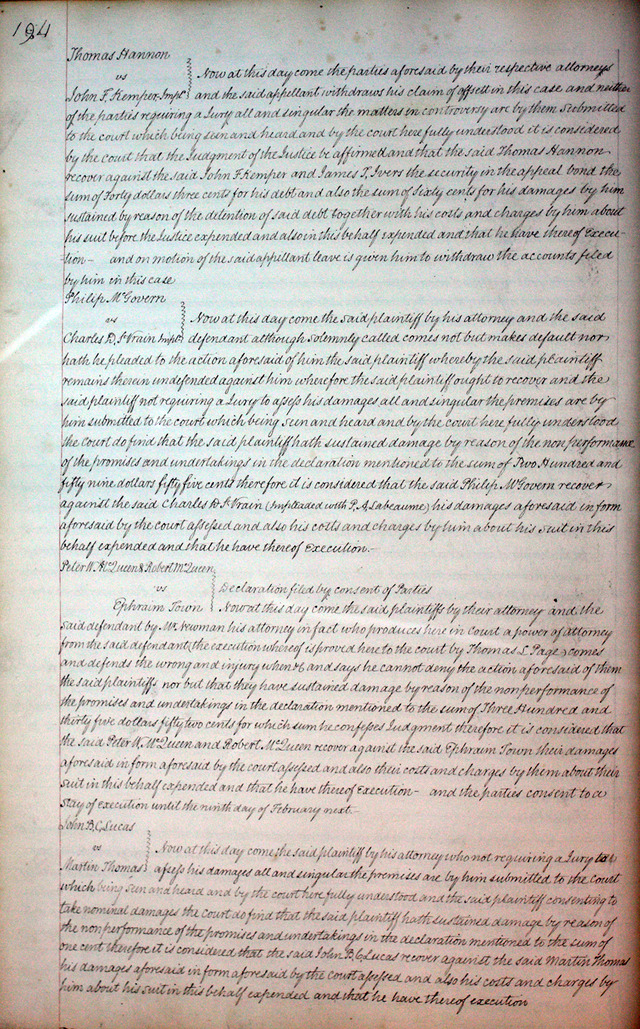 194
Thomas Hannon
vs
Now at this day come the parties aforesaid by their respective attorneys
John F. Kemper Impld and the said appellant withdraws his claim of offsett in this case and neither
of the parties requiring a Jury all and singular the matters in controversy are by them submitted
to the court which being seen and heard and by the court here fully understood it is considered
by the court that the Judgment of the Justice be affirmed and that the said Thomas Hannon
recover against the said John F Kemper and James T. Ivers the security in the appeal bond the
sum of Forty dollars three cents for his debt and also the sum of Sixty cents for his damages by him
sustained by reason of the detention of said debt together with his costs and charges by him about
his suit before the Justice expended and also in this behalf expended and that he have thereof Execu-
tion - and on motion of the said appellant leave is given him to withdraw the accounts filed
by him in this case
Philip McGovern
vs
Now at this day come the said plaintiff by his attorney and the said
Charles D. St Vrain Impld defendant although solemnly called comes not but makes default nor
hath he pleaded to the action aforesaid of him the said plaintiff whereby the said plaintiff
remains therein undefended against him wherefore the said plaintiff ought to recover and the
said plaintiff not requiring a Jury to assess his damages all and singular the premises are by
him submitted to the court which being seen and heard and by the court here fully understood
the Court do find that the said plaintiff hath sustained damage by reason of the nonperformance
of the promises and undertakings in the declaration mentioned to the sum of Two Hundred and
fifty nine dollars fifty five cents therefore it is considered that the said Philip McGovern recover
against the said Charles D St Vrain (Impleaded with P. A. Labeaume) his damages aforesaid in form
aforesaid by the court assessed and also his costs and charges by him about his suit in this
behalf expended and that he have thereof Execution.-
Peter W. McQueen & Robert McQueen
vs
Declaration filed by consent of Parties
Ephraim Town Now at this day come the said plaintiffs by their attorney and the
said defendant by Mr Newman his attorney in fact who produces here in court a power of attorney
from the said defendant (the execution whereof is proved here to the court by Thomas L Page) comes
and defends the wrong and injury when &c and says he cannot deny the action aforesaid of them
the said plaintiffs nor but that they have sustained damage by reason of the nonperformance of
the promises and undertakings in the declaration mentioned to the sum of Three Hundred and
thirty five dollars fifty two cents for which sum he confesses Judgment therefore it is considered that
the said Peter W. McQueen and Robert McQueen recover against the said Ephraim Town their damages
aforesaid in form aforesaid by the court assessed and also their costs and charges by them about their
suit in this behalf expended and that he have thereof execution - and the parties consent to a
Stay of execution until the ninth day of February next.-
John B. C. Lucas
vs
Now at this day come the said plaintiff by his attorney who not requiring a Jury to
Martin Thomas assess his damages all and singular the premises are by him submitted to the Court
which being seen and heard and by the court here fully understood and the said plaintiff consenting to
take nominal damages the court do find that the said plaintiff hath sustained damage by reason of
the nonperformance of the promises and undertakings in the declaration mentioned to the sum of
one cent therefore it is considered that the said John B. C. Lucas recover against the said Martin Thomas
his damages aforesaid in form aforesaid by the court assessed and also his costs and charges by
him about his suit in this behalf expended and that he have thereof execution